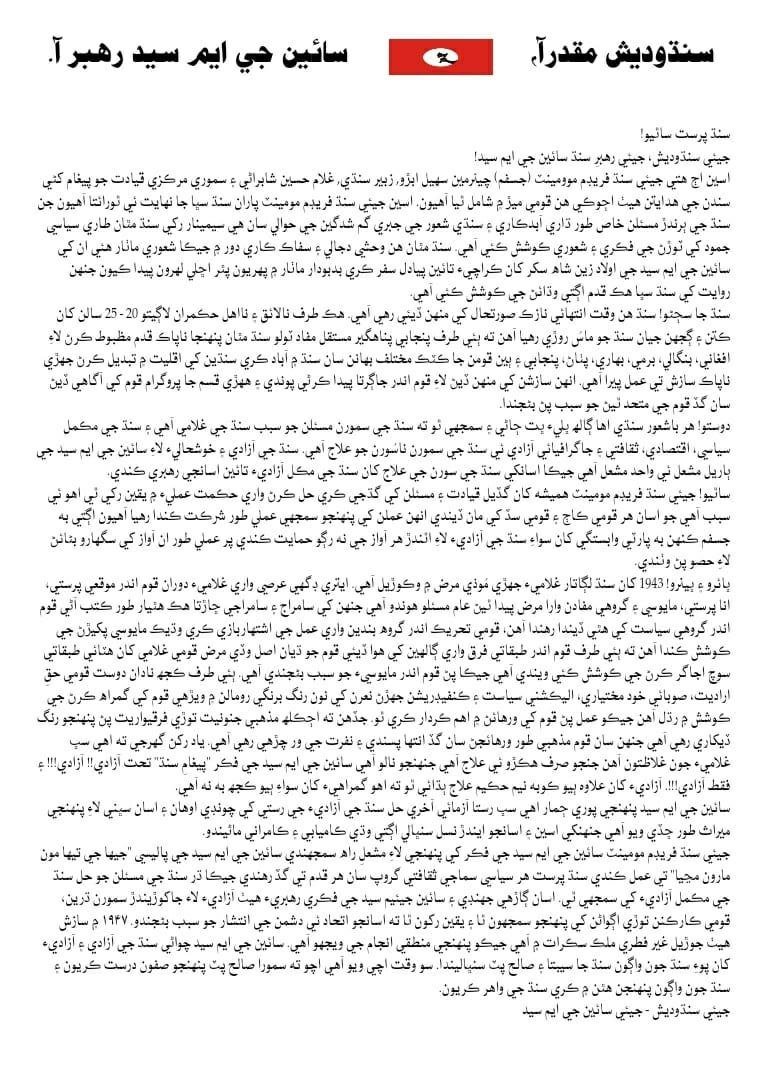 سنڌوديش مقدر آ، سائين جي ايم سيد رهبر آ.
سنڌ پرست ساٿيو!
جيئي سنڌوديش، جيئي رهبر سنڌ سائين جي ايم سيد!
اسين اڄ هتي جيئي سنڌ فريڊم موومينٽ (جسفم) چيئرمين سهيل ابڙو, زبير سنڌي, غلام حسين شابراڻي ۽ سموري مرڪزي قيادت جو پيغام کڻي
سندن جي هدايتن هيٺ اڄوڪي هن قومي ميڙ ۾ شامل ٿيا آهيون. اسين جيئي سنڌ فريڊم مومينٽ پاران سنڌ سڀا جا نهايت ئي ٿورائتا آهيون جن
سنڌ جي ٻرندڙ مسئلن خاص طور ڌاري آبادڪاري ۽ سنڌي شعور جي جبري گم شدگين جي حوالي سان هي سيمينار رکي سنڌ مٿان طاري سياسي
جمود کي ٽوڙڻ جي فڪري ۽ شعوري ڪوشش ڪئي آهي. سنڌ مٿان هن وحشي دجالي ۽ سفاڪ ڪاري دور ۾ جيڪا شعوري ماٺار هئي ان کي
سائين جي ايم سيد جي اولاد زين شاهه سکر کان ڪراچيءَ تائين پيادل سفر ڪري بدبودار ماٺار ۾ پهريون پٿر اڇلي لهرون پيدا ڪيون جنهن
روايت کي سنڌ سڀا هڪ قدم اڳتي وڌائڻ جي ڪوشش ڪئي آهي.
سنڌ جا سڄڻو! سنڌ هن وقت انتهائي نازڪ صورتحال کي منهن ڏيئي رهي آهي. هڪ طرف نالائق ۽ نااهل حڪمران لاڳيتو 20 - 25 سالن کان
ڪتن ۽ ڳجهن جيان سنڌ جو ماس روڙي رهيا آهن ته ٻئي طرف پنجابي پناهگير مستقل مفاد ٽولو سنڌ مٿان پنهنجا ناپاڪ قدم مظبوط ڪرڻ لاءِ
افغاني، بنگالي، برمي، بهاري، پٺاڻ، پنجابي ۽ ٻين قومن جا ڪٽڪ مختلف بهانن سان سنڌ ۾ آباد ڪري سنڌين کي اقليت ۾ تبديل ڪرڻ جهڙي
ناپاڪ سازش تي عمل پيرا آهي. انهن سازشن کي منهن ڏيڻ لاءِ قوم اندر جاڳرتا پيدا ڪرڻي پوندي ۽ ههڙي قسم جا پروگرام قوم کي آگاهي ڏيڻ
سان گڏ قوم جي متحد ٿيڻ جو سبب پڻ بڻجندا.
دوستو! هر باشعور سنڌي اها ڳالهه ڀليءَ ڀت ڄاڻي ۽ سمجهي ٿو ته سنڌ جي سمورن مسئلن جو سبب سنڌ جي غلامي آهي ۽ سنڌ جي مڪمل
سياسي، اقتصادي، ثقافتي ۽ جاگرافيائي آزادي ئي سنڌ جي سمورن ناسُورن جو علاج آهي. سنڌ جي آزادي ۽ خوشحاليءَ لاءِ سائين جي ايم سيد جي
ٻاريل مشعل ئي واحد مشعل آهي جيڪا اسانکي سنڌ جي سورن جي علاج کان سنڌ جي مڪل آزاديءَ تائين اسانجي رهبري ڪندي.
ساٿيو! جيئي سنڌ فريڊم مومينٽ هميشه کان گڏيل قيادت ۽ مسئلن کي گڏجي ڪري حل ڪرڻ واري حڪمت عمليءَ ۾ يقين رکي ٿي اهو ئي
سبب آهي جو اسان هر قومي ڪاڄ ۽ قومي سڏ کي مان ڏيندي انهن عملن کي پنهنجو سمجهي عملي طور شرڪت ڪندا رهيا آهيون اڳتي به
جسفم ڪنهن به پارٽي وابستگي کان سواءِ سنڌ جي آزاديءَ لاءِ اٿندڙ هر آواز جي نه رڳو حمايت ڪندي پر عملي طور ان آواز کي سگهارو بڻائڻ
لاءِ حصو پڻ وٺندي.
ڀائرو ۽ ڀينرو! 1943 کان سنڌ لڳاتار غلاميءَ جهڙي مُوذي مرض ۾ وڪوڙيل آهي. ايتري ڊگهي عرصي واري غلاميءَ دوران قوم اندر موقعي پرستي،
انا پرستي، مايوسي ۽ گروهي مفادن وارا مرض پيدا ٿيڻ عام مسئلو هوندو آهي جنهن کي سامراج ۽ سامراجي چاڙتا هڪ هٿيار طور ڪتب آڻي قوم
اندر گروهي سياست کي هٿي ڏيندا رهندا آهن، قومي تحريڪ اندر گروهه بندين واري عمل جي اشتهاربازي ڪري وڌيڪ مايوسي پکيڙڻ جي
ڪوشش ڪندا آهن ته ٻئي طرف قوم اندر طبقاتي فرق واري ڳالهين کي هوا ڏيئي قوم جو ڌيان اصل وڏي مرض قومي غلامي کان هٽائي طبقاتي
سوچ اجاگر ڪرڻ جي ڪوشش ڪئي ويندي آهي جيڪا پڻ قوم اندر مايوسيءَ جو سبب بڻجندي آهي. ٻئي طرف ڪجهه نادان دوست قومي حقِ
اراديت، صوبائي خود مختياري، اليڪشني سياست ۽ ڪنفيڊريشن جهڙن نعرن کي نون رنگ برنگي رومالن ۾ ويڙهي قوم کي گمراهه ڪرڻ جي
ڪوشش ۾ رڌل آهن جيڪو عمل پڻ قوم کي ورهائڻ ۾ اهم ڪردار ڪري ٿو. جڏهن ته اڄڪلهه مذهبي جنونيت توڙي فرقيواريت پڻ پنهنجو رنگ
ڏيکاري رهي آهي جنهن سان قوم مذهبي طور ورهائجڻ سان گڏ انتها پسندي ۽ نفرت جي ور چڙهي رهي آهي. ياد رکڻ گهرجي ته اهي سڀ
غلاميءَ جون غلاظتون آهن جنجو صرف هڪڙو ئي علاج آهي جنهنجو نالو آهي سائين جي ايم سيد جي فڪر "پيغامِ سنڌ" تحت آزادي!! آزادي!!! ۽
فقط آزادي!!!. آزاديءَ کان علاوه ٻيو ڪوبه نيم حڪيم علاج ٻڌائي ٿو ته اهو گمراهيءَ کان سواءِ ٻيو ڪجهه به نه آهي.
سائين جي ايم سيد پنهنجي پوري ڄمار اهي سڀ رستا آزمائي آخري حل سنڌ جي آزاديءَ جي رستي کي چونڊي اوهان ۽ اسان سڀني لاءِ پنهنجي
ميراث طور ڇڏي ويو آهي جنهنکي اسين ۽ اسانجو ايندڙ نسل سنڀالي اڳتي وڌي ڪاميابي ۽ ڪامراني ماڻيندو.
جيئي سنڌ فريڊم مومينٽ سائين جي ايم سيد جي فڪر کي پنهنجي لاءِ مشعل راهه سمجهندي سائين جي ايم سيد جي پاليسي "جيها جي تيها مون
مارون مڃيا" تي عمل ڪندي سنڌ پرست هر سياسي سماجي ثقافتي گروپ سان هر قدم تي گڏ رهندي جيڪا ڌر سنڌ جي مسئلن جو حل سنڌ
جي مڪمل آزاديءَ کي سمجهي ٿي. اسان ڳاڙهي جهنڊي ۽ سائين جيئيم سيد جي فڪري رهبريءَ هيٺ آزاديءَ لاءِ جاکوڙيندڙ سمورن ڌرين،
قومي ڪارڪنن توڙي اڳواڻن کي پنهنجو سمجهون ٿا ۽ يقين رکون ٿا ته اسانجو اتحاد ئي دشمن جي انتشار جو سبب بڻجندو. ۱۹۴۷ ۾ سازش
هيٺ جوڙيل غير فطري ملڪ سڪرات ۾ آهي جيڪو پنهنجي منطقي انجام جي ويجهو آهي. سائين جي ايم سيد چواڻي سنڌ جي آزادي ۽ آزاديءَ
کان پوءِ سنڌ جون واڳون سنڌ جا سيبتا ۽ صالح پٽ سنڀاليندا. سو وقت اچي ويو آهي اچو ته سمورا صالح پٽ پنهنجو صفون درست ڪريون ۽
سنڌ جون واڳون پنهنجن هٿن ۾ ڪري سنڌ جي واهر ڪريون.
جيئي سنڌوديش - جيئي سائين جي ايم سيد